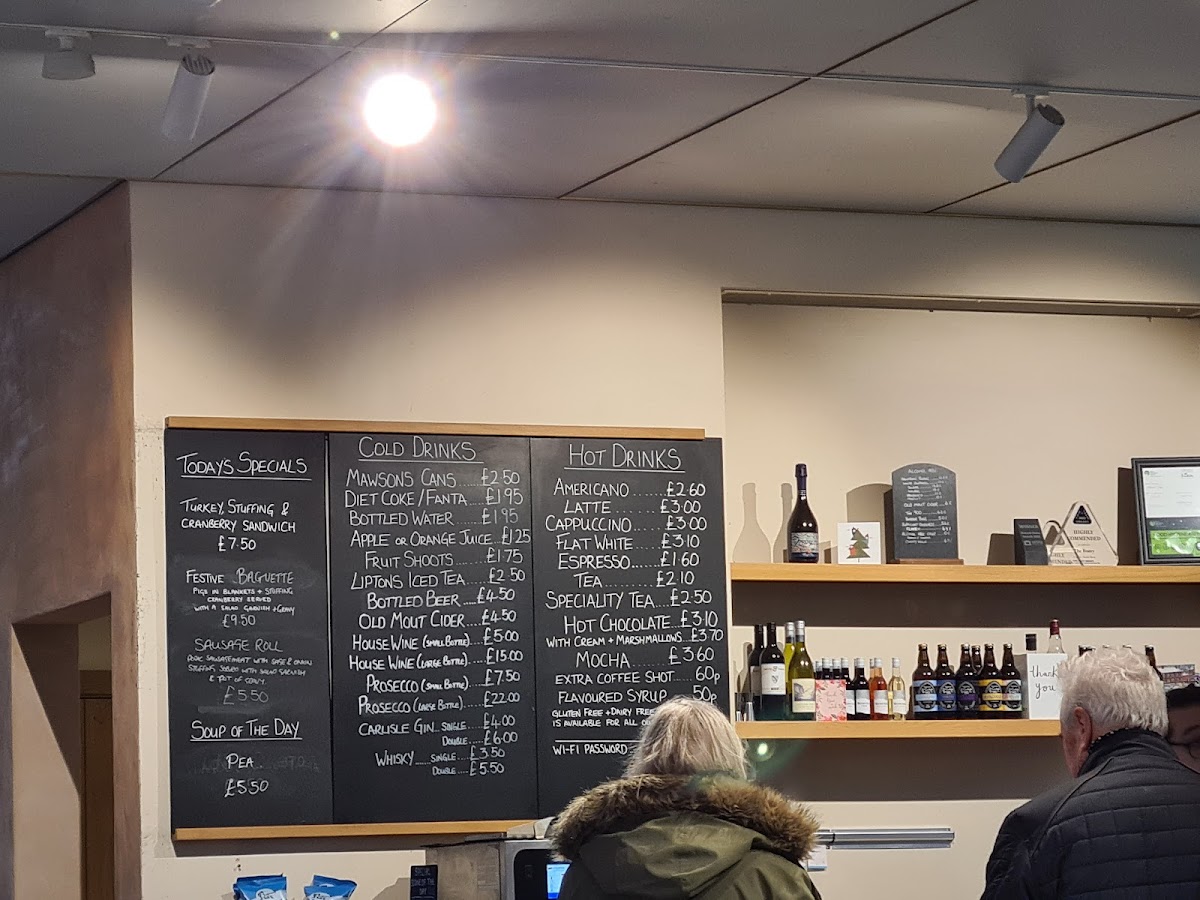 TODAY'S SPECIALS
TURKEY, STUFFING &
CRANBERRY SANDWICH
£7.50
FESTIVE BAGUETTE
PIGS IN BLANKETS + STUFFING
CRANBERRY SERVED
WITH A SALAD GARNISH + GRAVY
£9.50
SAUSAGE ROLL
PORK SAUSAGEMEAT WITH SAGE & ONION
STUFFING SERVED WITH SALAD GARNISH
& POT OF GRAVY
£5.50
SOUP OF THE DAY
PEA
£5.50
COLD DRINKS
MAWSONS CANS ...... £2.50
DIET COKE / FANTA ... £1.95
BOTTLED WATER ...... £1.95
APPLE OR ORANGE JUICE ... £1.25
FRUIT SHOOTS ..... £1.75
LIPTONS ICED TEA .... £2.50
BOTTLED BEER .... £4.50
OLD MOUT CIDER .... £4.50
HOUSE WINE (SMALL BOTTLE) .... £5.00
HOUSE WINE (LARGE BOTTLE) ... £15.00
PROSECCO (SMALL BOTTLE) .... £7.50
PROSECCO (LARGE BOTTLE) .... £22.00
CARLISLE GIN .. SINGLE .... £4.00
DOUBLE .... £6.00
WHISKY ..... SINGLE .... £3.50
DOUBLE .... £5.50
HOT DRINKS
AMERICANO ....... £2.60
LATTE ........ £3.00
CAPPUCCINO ..... £3.00
FLAT WHITE .... £3.10
ESPRESSO ...... £1.60
TEA ........ £2.10
SPECIALITY TEA .... £2.50
HOT CHOCOLATE .. £3.10
WITH CREAM + MARSHMALLOWS .. £3.70
MOCHA ....... £3.60
EXTRA COFFEE SHOT ..... 60p
FLAVOURED SYRUP .... 50p
GLUTEN FREE + DAIRY FREE
IS AVAILABLE FOR ALL
WI-FI PASSWORD
HIGHLY
COMMENDED
thank
you
SPECIAL
SOUP OF THE
DAY